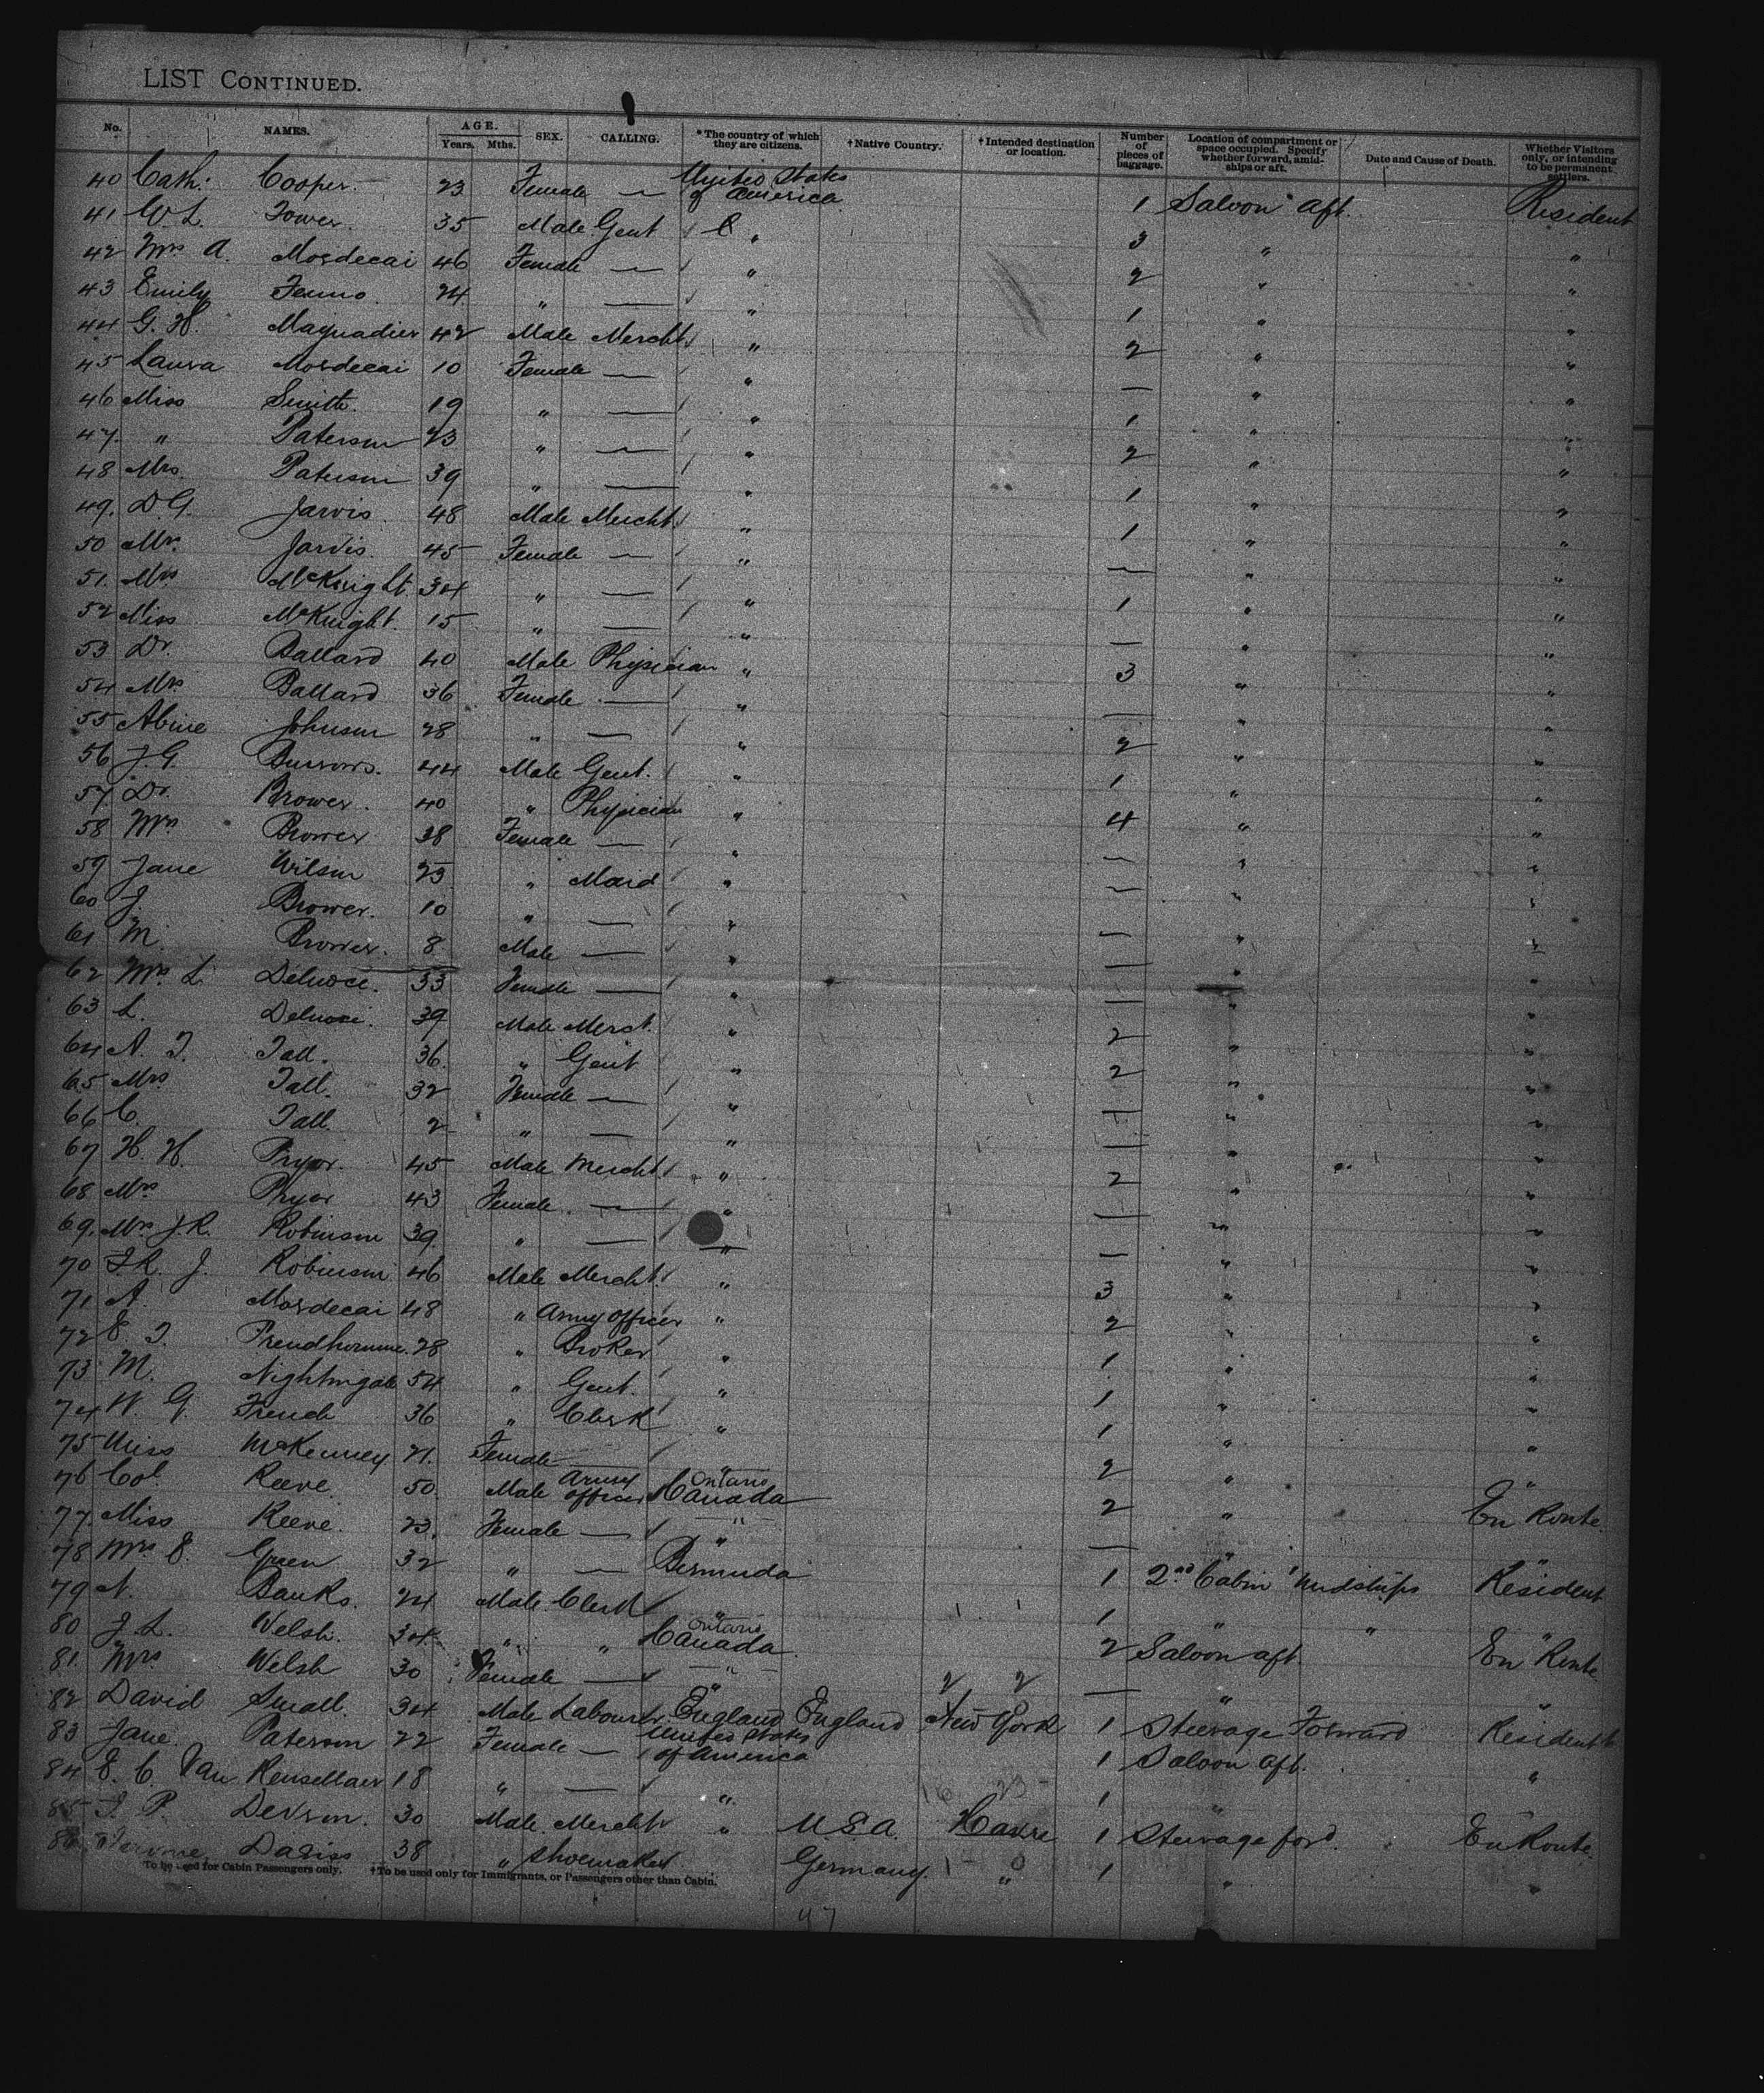 LIST CONTINUED.
No. NAMES. AGE. Years. Mths. SEX. CALLING. *The country of which they are citizens. †Native Country. †Intended destination or location. Number of pieces of baggage. Location of compartment or space occupied. Specify whether forward, amidships or aft. Date and Cause of Death. Whether Visitors only, or intending to be permanent settlers.
40 Cath: Cooper. 23 Female — United States of America 1 Saloon aft. Resident
41 W. L. Tower. 35 Male Gent " 3 " "
42 Mrs A. Mordecai 46 Female — " 2 " "
43 Emily Fenno. 24 " — " 1 " "
44 G. H. 42 Male Mercht " 2 " "
45 Laura Mordecai 10 Female — " — " "
46 Miss Smith. 19 " — " 1 " "
47. " Paterson 23 " — " 2 " "
48 Mrs. Paterson 39 " — " 1 " "
49. D. G. Jarvis. 48 Male Mercht. " 1 " "
50 Mrs. Jarvis. 45 Female — " — " "
51. Mrs McKnight. 34 " — " 1 " "
52 Miss McKnight. 15 " — " — " "
53 Dr. Ballard 40 Male Physician " 3 " "
54 Mrs Ballard 36 Female — " — " "
55 Johnson 28 " — " 2 " "
56 J. G. Burrows. 44 Male Gent. " 1 " "
57 Dr. Brower. 40 " Physician " 4 " "
58 Mrs Brower 38 Female — " — " "
59 Jane Wilson 23 " Maid " — " "
60 J. Brower. 10 " — " — " "
61 M. Brower. 8 Male — " — " "
62 Mrs. L. 33 Female — " — " "
63 L. 39 Male Merct. " 2 " "
64 A. T. Tall. 36. " Gent " 2 " "
65 Mrs. Tall. 32 Female — " — " "
66 C. Tall. 2 " — " — " "
67 H. H. Pryor. 45 Male Mercht " 2 " "
68 Mrs Pryor 43 Female. — " — " "
69. Mrs J. R. Robinson 39. " — " — " "
70 J. Robinson 46 Male Mercht. " 3 " "
71 A. Mordecai 48 " Army Officer " 2 " "
72 E. T. Preudhomme. 28 " Broker " 1 " "
73 M. Nightingale 54 " Gent. " 1 " "
74 W. G. French 36 " Clerk " 1 " "
75 Miss McKenney 21. Female — " 2 " "
76 Col. Reeve. 50. Male Army Officer Ontario Canada 2 " En Route.
77. Miss Reeve. 23. Female — " — " "
78 Mrs E. Green 32 " — Bermuda 1 2nd Cabin Midships Resident
79 N. Banks. 24 Male Clerk " 1 " " "
80 J. L. Welsh. 34 " " Ontario Canada. 2 Saloon aft. En Route
81. Mrs Welsh 30 Female — " 2 2 — " "
82 David Small. 34 Male Labourer England England New York 1 Steerage Forward Resident
83 Jane. Paterson 22 Female — United States of America 1 Saloon aft. "
84 E. C. Van Rensellaer 18 " — " 1 " "
85 30 Male. Mercht " U.S.A. Havre 1 Steerage ford. En Route.
86 38 " Shoemaker Germany. " 1 " "
To be used for Cabin Passengers only. †To be used only for Immigrants, or Passengers other than Cabin.
47